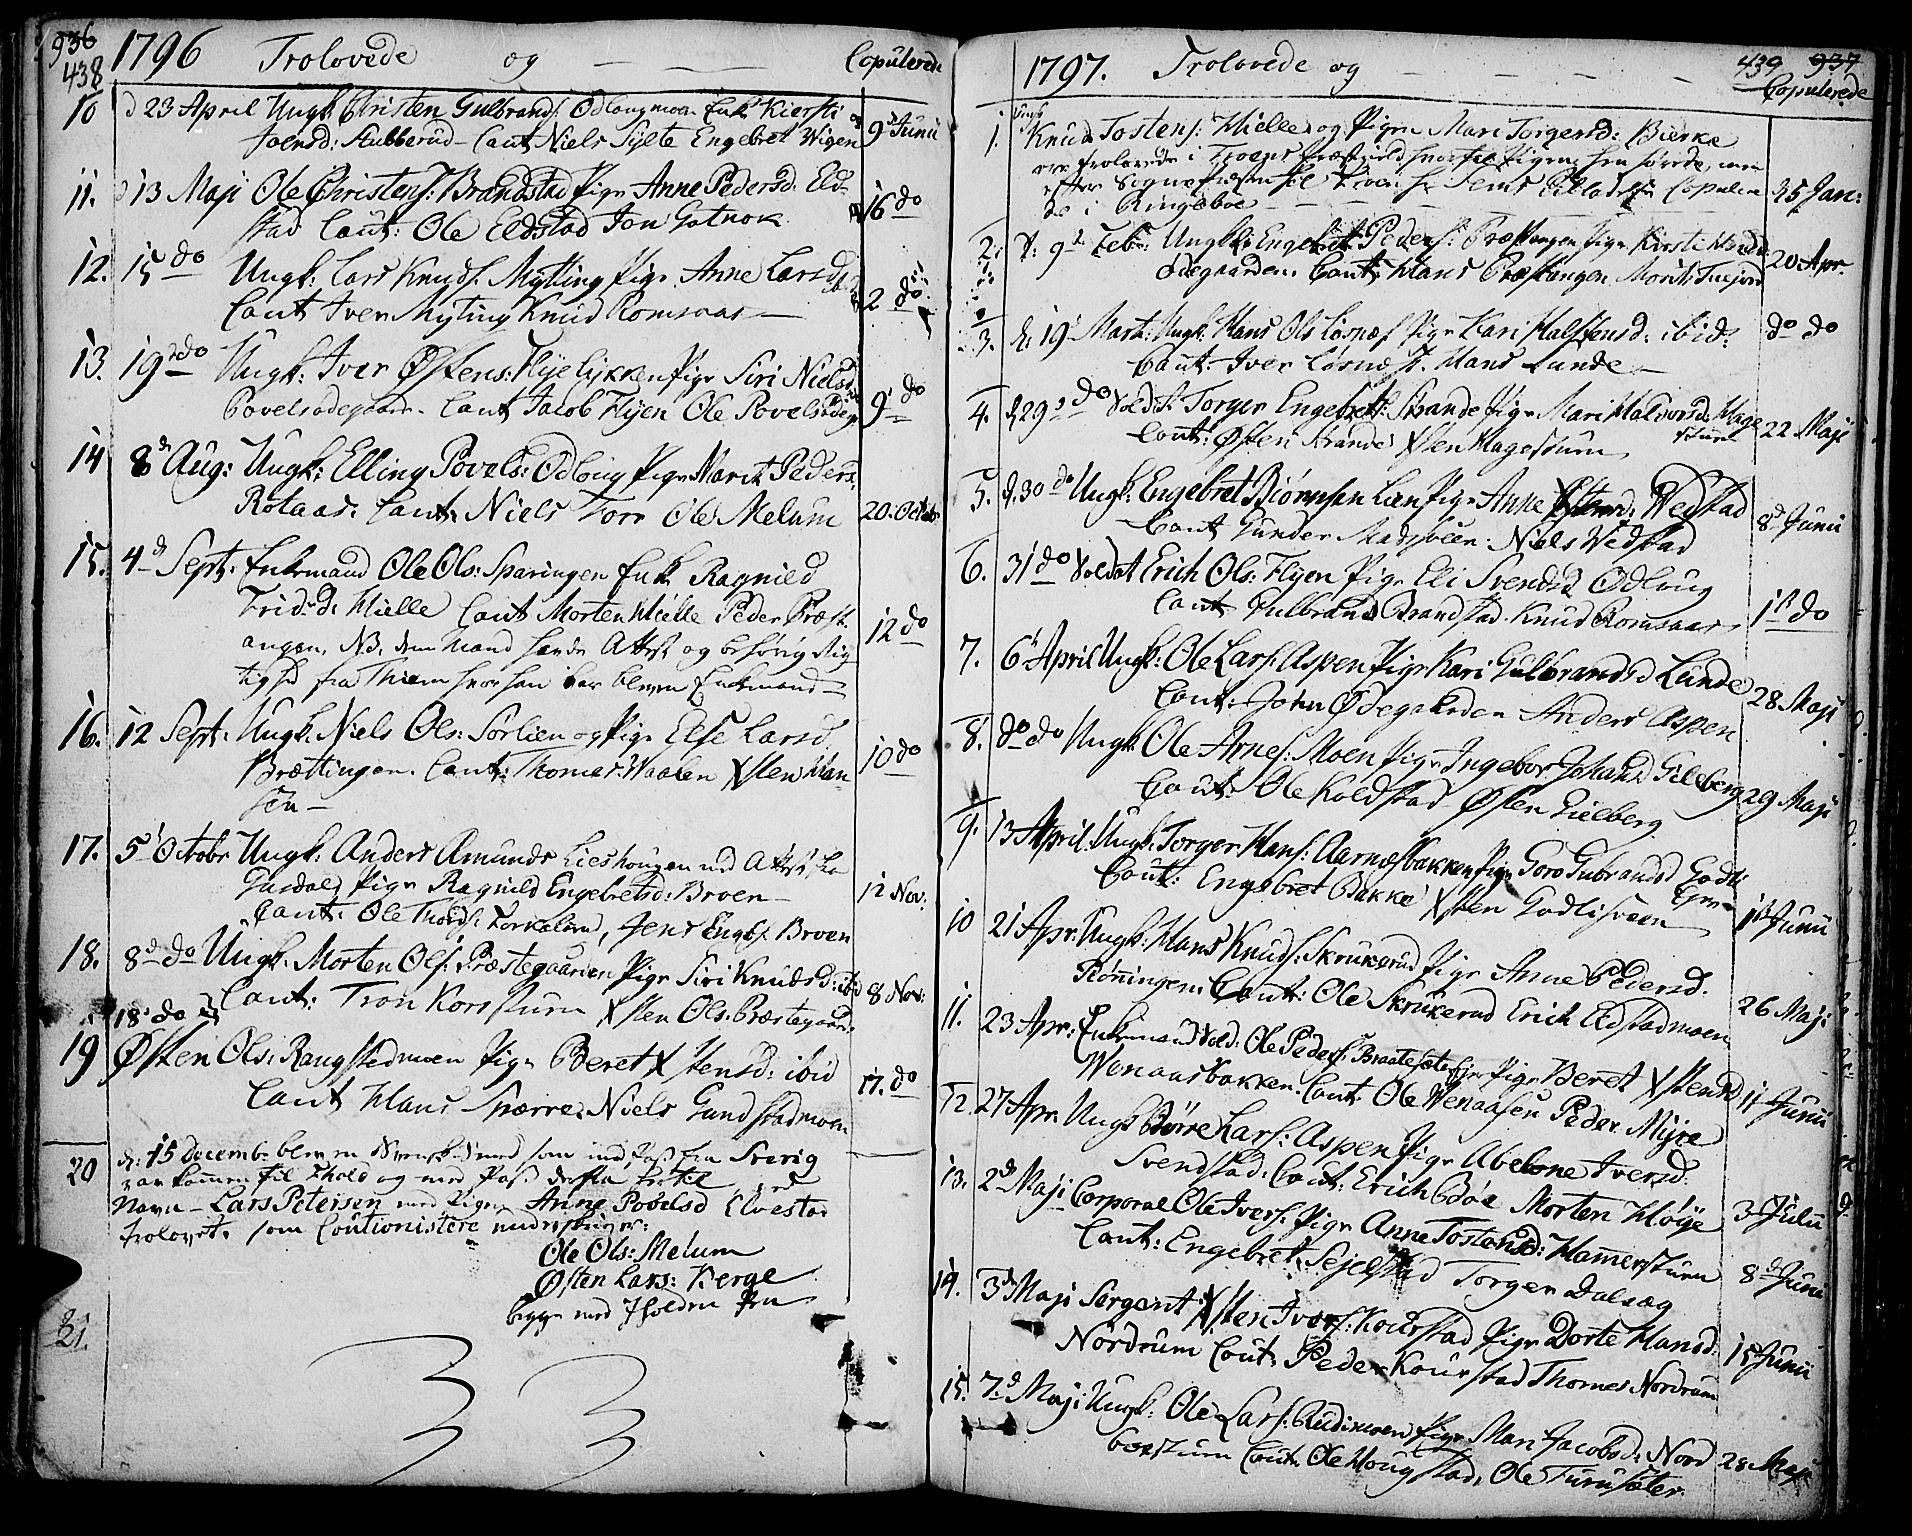 936
438
1796 Trolovede og Copulerede
10 d 23 April Ungk. Christen Gulbrands: Odlougmoen Enke Kiersti
Joensd: Stubberud Caut Niels Sylte Engebret Wigen 9d Junii
11. d 13 Maji Ole Christens: Brandstad Pige Anne Pedersd. Eld-
stad Caut: Ole Eldstad Jon Gotnok 16 do
12. 15 do Ungk: Lars Knuds. Mytting Pige Anne Larsd
Caut Iver Myting Knud Romsaas 2 do
13. 19 do Ungk: Iver Østens: Flyelykken Pige Siri Nielsd
Povelsødegaar. Caut Jacob Flyen Ole Povelsødeg 9 do
14 8d Aug: Ungk: Elling Povels: Odloug Pige Marit Peders:
Rolaas. Caut. Niels Torr Ole Melum 20. Octobr
15. 4d Sept. Enkemand Ole Ols: Sparingen Enk. Ragnild
Fridsd: Hielle Caut Morten Hielle Peder Præst
angen. NB. denne Mand havde Attest og behørig Rig
tighd fra Thiem hvor han var bleven Enkemand 12 do
16. 12 Sept. Ungk. Niels Ols: Sorlien og Pige Else Larsd
Brættingen. Caut: Thomas Waalen Østen Han
sen 10 do
17. 5 Octobr Ungk: Anders Amunds Lieshougen med Attest fra
Gusdal, Pige Ragnild Engebretsd: Broen
Caut: Ole Thords: Jens Engebs. Broen 12 Nov:
18. 8d do Ungk. Morten Ols. Præstegaarden Pige Siri Knudsd: ibid
Caut: Tron Korsturn Østen Ols: Præstegaard 8 Nov:
18 do
19 Østen Ols: Raugstadmoen Pige Beret Østensd: ibid
Caut Hans Spærre Niels Gundstadmoen 17. do
20 d: 15 Decemb. blev en Svensk mand som med Pas fra Sverig
var kommen til Fhold og med Pas derfra
Navn Lars Petersen med Pigen Anne Povelsd Elvestad
trolovet. som Cautionistere underskriver:
Ole Ols: Melum
Østen Lars: Berge
begge med Iholden Pen
21.
1797. Trolovede og 439 937
Copulerede
1. Ungk Knud Tostens: Hielle og Pige Mari Torgersd: Bierke
ere trolovede i Froens Præstegield hvortil Pigen hen hørde, men
Copulere
de i Ringeboe 25 Jan:
2. d: 9d Febr: Ungk: Engebret Peders: Præstangen Pige Kirsti
Ødegaarden. Caut: Hans Præstangen Morit 20 Apr.
3. d: 19 Mart: Ungk: Hans Ols Losnæs Pige Kari Halstensd: ibid:
Caut: Iver Losnæs. Hans Lunde do do
4. d 29 do Sold. Torger Engebrets: Strande Pige Mari Halvorsd: Hage
sturn
Caut: Østen Strande Østen Hagesturn 22 Maji
5. d. 30 do Ungk: Engebret Biørnsen Lien Pige Anne Wedstad
Caut Gunder Niels Wedstad 8d Junii
6. 31 do Soldat Erich Ols: Flyen Pige Eli Svendsd Odloug
Caut Gulbrand Brandstad. Knud Romsaas 1st do
7. 6 April Ungk: Ole Lars: Aspen Pige Kari Gulbrandsd Lunde
Caut. John Ødegaarden Anders Aspen 28 Maji
8. do do Ungk Ole Arnes: Moen Pige Ingebor Johansd Gilberg
Caut: Ole Koldstad Østen Gielberg 29 Maji
9. 13 April. Ungk. Torger Hans: Aarnesbakken Pige Goro Gubrandsd Godli
Caut: Engebret Bakke Østen Godlisveen 1st Junii
10 21 Apr: Ungk: Hans Knuds: Skrukerud Pige Anne Pedersd.
Rønningen. Caut: Ole Skrukerud Erich Eldstadmoen 26 Maji
11. 23 Apr: Enkemand Sold: Ole Peders: Braatesæteren Pige Beret Østensd
Wenaasbakken. Caut Ole Wenaasen Peder Myre 11 Junii
12. 27 Apr. Ungk Børre Lars: Aspen Pige Abelone Iversd.
Svendstad: Caut: Erich Bøe Morten Høye 3 Julii
13. 2d Maji Corporal Ole Ivers: Pige Anne Tostensd: Hamersturn
Caut: Engebret Sejelstad Torger Dalsæg 8d Junii
14. 3d Maji Sergent Østen Ivers: Kourstad Pige Dorte Hansd:
Nordrum Caut. Peder Kourstad Thomes Nordrum 15 Junii
15. 7d Maji Ungk: Ole Lars: Rudismoen Pige Mari Jacobsd: Nord
Caut. Ole Hougstad, Ole Turusæter. 28 Maji